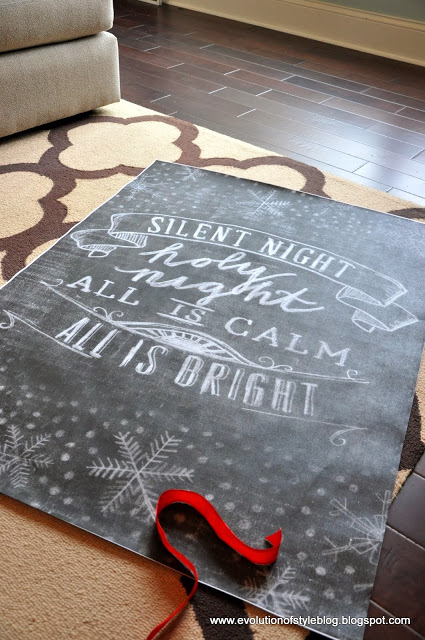 SILENT NIGHT
holy
night
ALL IS CALM
ALL IS BRIGHT
www.evolutionofstyleblog.blogspot.com